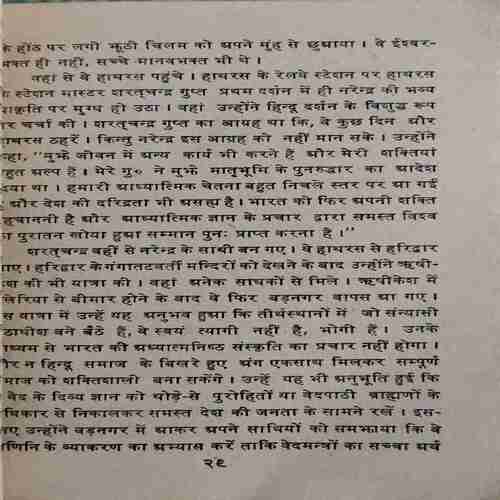 के होंठ पर लगी झूठी चिलम को अपने मूंह से छुआया । वे ईश्वर-
भक्त ही नहीं, सच्चे मानवभक्त भी थे ।
वहां से वे हाथरस पहुंचे । हाथरस के रेलवे स्टेशन पर हाथरस
के स्टेशन मास्टर शरत्चन्द्र गुप्त प्रथम दर्शन में ही नरेन्द्र की भव्य
कृति पर मुग्ध हो उठा । वहां उन्होंने हिन्दू दर्शन के विशुद्ध रूप
पर चर्चा की । शरत्चन्द्र गुप्त का आग्रह था कि, वे कुछ दिन और
हाथरस ठहरें । किन्तु नरेन्द्र इस आग्रह को नहीं मान सके । उन्होंने
कहा, "मुझे जीवन में अन्य कार्य भी करने हैं और मेरी शक्तियां
बहुत अल्प हैं । मेरे गुरु ने मुझे मातृभूमि के पुनरुद्धार का आदेश
दिया था । हमारी आध्यात्मिक चेतना बहुत निचले स्तर पर आ गई
है और देश की दरिद्रता भी असह्य है । भारत को फिर अपनी शक्ति
पहचाननी है और आध्यात्मिक ज्ञान के प्रचार द्वारा समस्त विश्व
का पुरातन खोया हुआ सम्मान पुनः प्राप्त करना है ।"
शरत्चन्द्र वहीं से नरेन्द्र के साथी बन गए । वे हाथरस से हरिद्वार
आए । हरिद्वार के गंगातटवर्ती मन्दिरों को देखने के बाद उन्होंने ऋषी-
केश की भी यात्रा की । वहां अनेक साधकों से मिले । ऋषीकेश में
मलेरिया से बीमार होने के बाद वे फिर बड़नगर वापस आ गए ।
इस यात्रा में उन्हें यह अनुभव हुआ कि तीर्थस्थानों में जो संन्यासी
मठाधीश बने बैठे हैं, वे स्वयं त्यागी नहीं है, भोगी हैं । उनके
माध्यम से भारत की अध्यात्मनिष्ठ संस्कृति का प्रचार नहीं होगा ।
और न हिन्दू समाज के बिखरे हुए अंग एकसाथ मिलकर सम्पूर्ण
समाज को शक्तिशाली बना सकेंगे । उन्हें यह भी अनुभूति हुई कि
वेद के दिव्य ज्ञान को थोड़े-से पुरोहितों या वेदपाठी ब्राह्मणों के
अधिकार से निकालकर समस्त देश की जनता के सामने रखें । इस-
लिए उन्होंने बड़नगर में आकर अपने साथियों को समझाया कि वे
पाणिनि के व्याकरण का अभ्यास करें ताकि वेदमन्त्रों का सच्चा अर्थ
२९